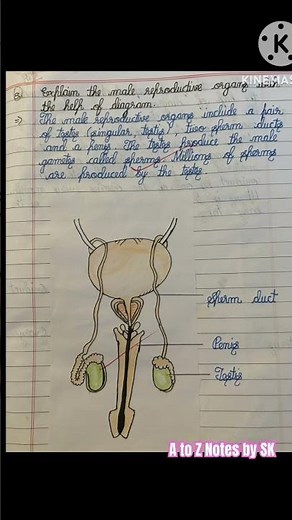 K
KINEMAS
Q Explain the male reproductive organs with
the help of diagram.
⇒ The male reproductive organs include a pair
of testes (singular, testis), two sperm ducts
and a penis. The testes produce the male
gametes called sperms. Millions of sperms
are produced by the testes.
Sperm duct
Penis
Testis
A to Z Notes by SK